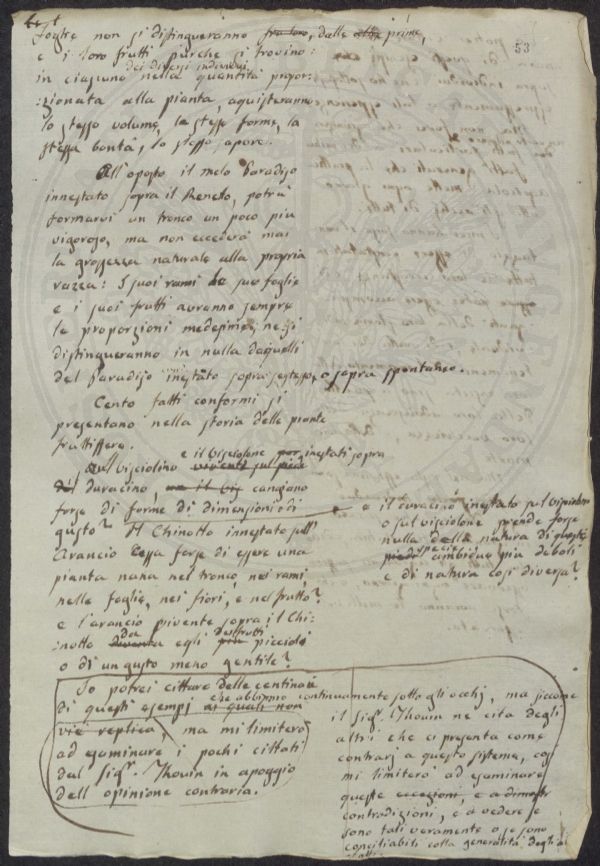 53
foglie non si distingueranno fra loro, dalle altre prime,
e i loro frutti purche si trovino:
dei diversi individui
in ciascuno nella quantità propor:
:zionata alla pianta, aquisteranno
lo stesso volume, la stessa forma, la
stessa bontà, lo stesso sapore.
All'oposto il melo Paradiso
innestato sopra il Renetto, potrà
formarvi un tronco un poco più
vigoroso, ma non eccederà mai
la grossezza naturale alla propria
razza: I suoi rami le sue foglie
e i suoi frutti avranno sempre
le proporzioni medesime, ne si
distingueranno in nulla daquelli
del Paradiso inestato sopra sestesso, o sopra spontaneo.
Cento fatti conformi si
presentano nella storia delle piante
fruttifere.
e il Visciolone inestati sopra
Sul Visciolino viventi sul piede
duracino, cangiano
forse di forme di dimensioni o di
gusto? Il Chinotto innestato sull'
Arancio cessa forse di essere una
pianta nana nel tronco, nei rami,
nelle foglie, nei fiori, e nel frutto?
e l'arancio vivente sopra il Chi:
:notto dà egli dei frutti piccioli
o di un gusto meno gentile?
e il duracino inestato sul visciolino
o sul visciolone prende forse
nulla della natura di queste
specie ambidue più deboli
e di natura così diversa?
Io potrei cittare delle centinaia
che abbiamo continuamente sotto gli occhj, ma siccome
di questi esempj ai quali non
vi è replica, ma mi limiterò
ad esaminare i pochi cittati
dal Sig.r Thouin in apoggio
dell'opinione contraria.
il Sig.r Thouin ne cita degli
altri che ci presenta come
contrarj a questo sistema, così
mi limiterò ad esaminare
queste eccezioni, e a dimostr
contradizioni, e a vedere se
sono tali veramente o se sono
conciliabili colla generalità degli al